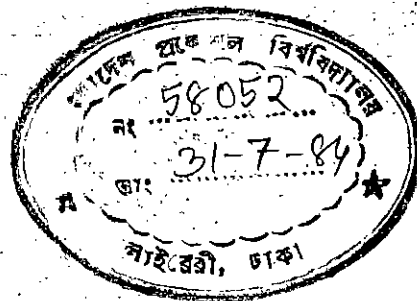 বাংলাদেশ প্রকৌশল বিশ্ববিদ্যালয়
নং 58052
তাং 31-7-84
লাইব্রেরী, ঢাকা